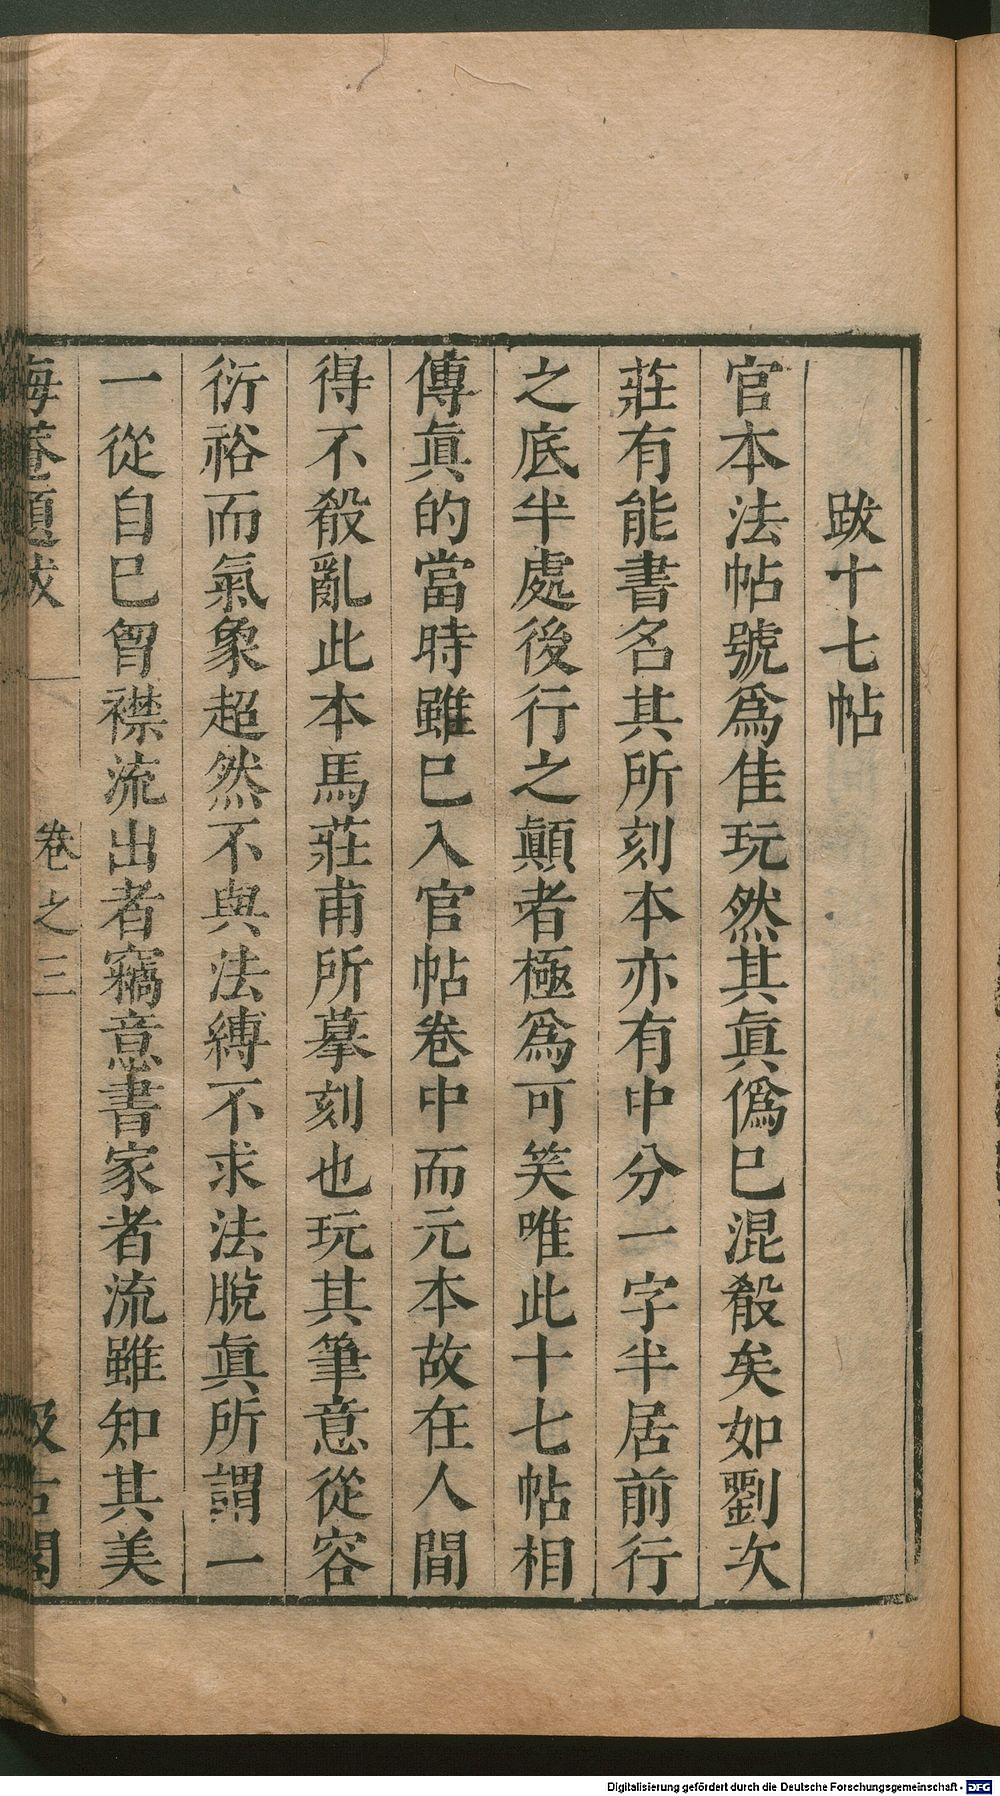 跋十七帖
官本法帖號爲佳玩然其眞僞巳混殽矣如劉次
莊有能書名其所刻本亦有中分一字半居前行
之底半處後行之顛者極爲可笑唯此十七帖相
傳眞的當時雖巳入官帖卷中而元本故在人間
得不殽亂此本馬莊甫所摹刻也玩其筆意從容
衍裕而氣象超然不與法縛不求法脫眞所謂一
一從自巳胷襟流出者竊意書家者流雖知其美
海菴題跋 卷之三 汲古閣
Digitalisierung gefördert durch die Deutsche Forschungsgemeinschaft - DFG